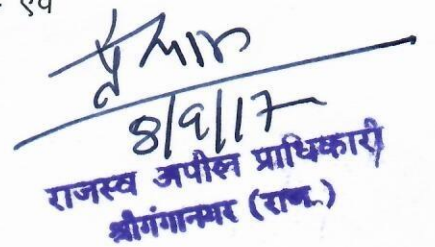 एवं
8/9/17
राजस्व अपील प्राधिकारी
श्रीगंगानगर (राज.)